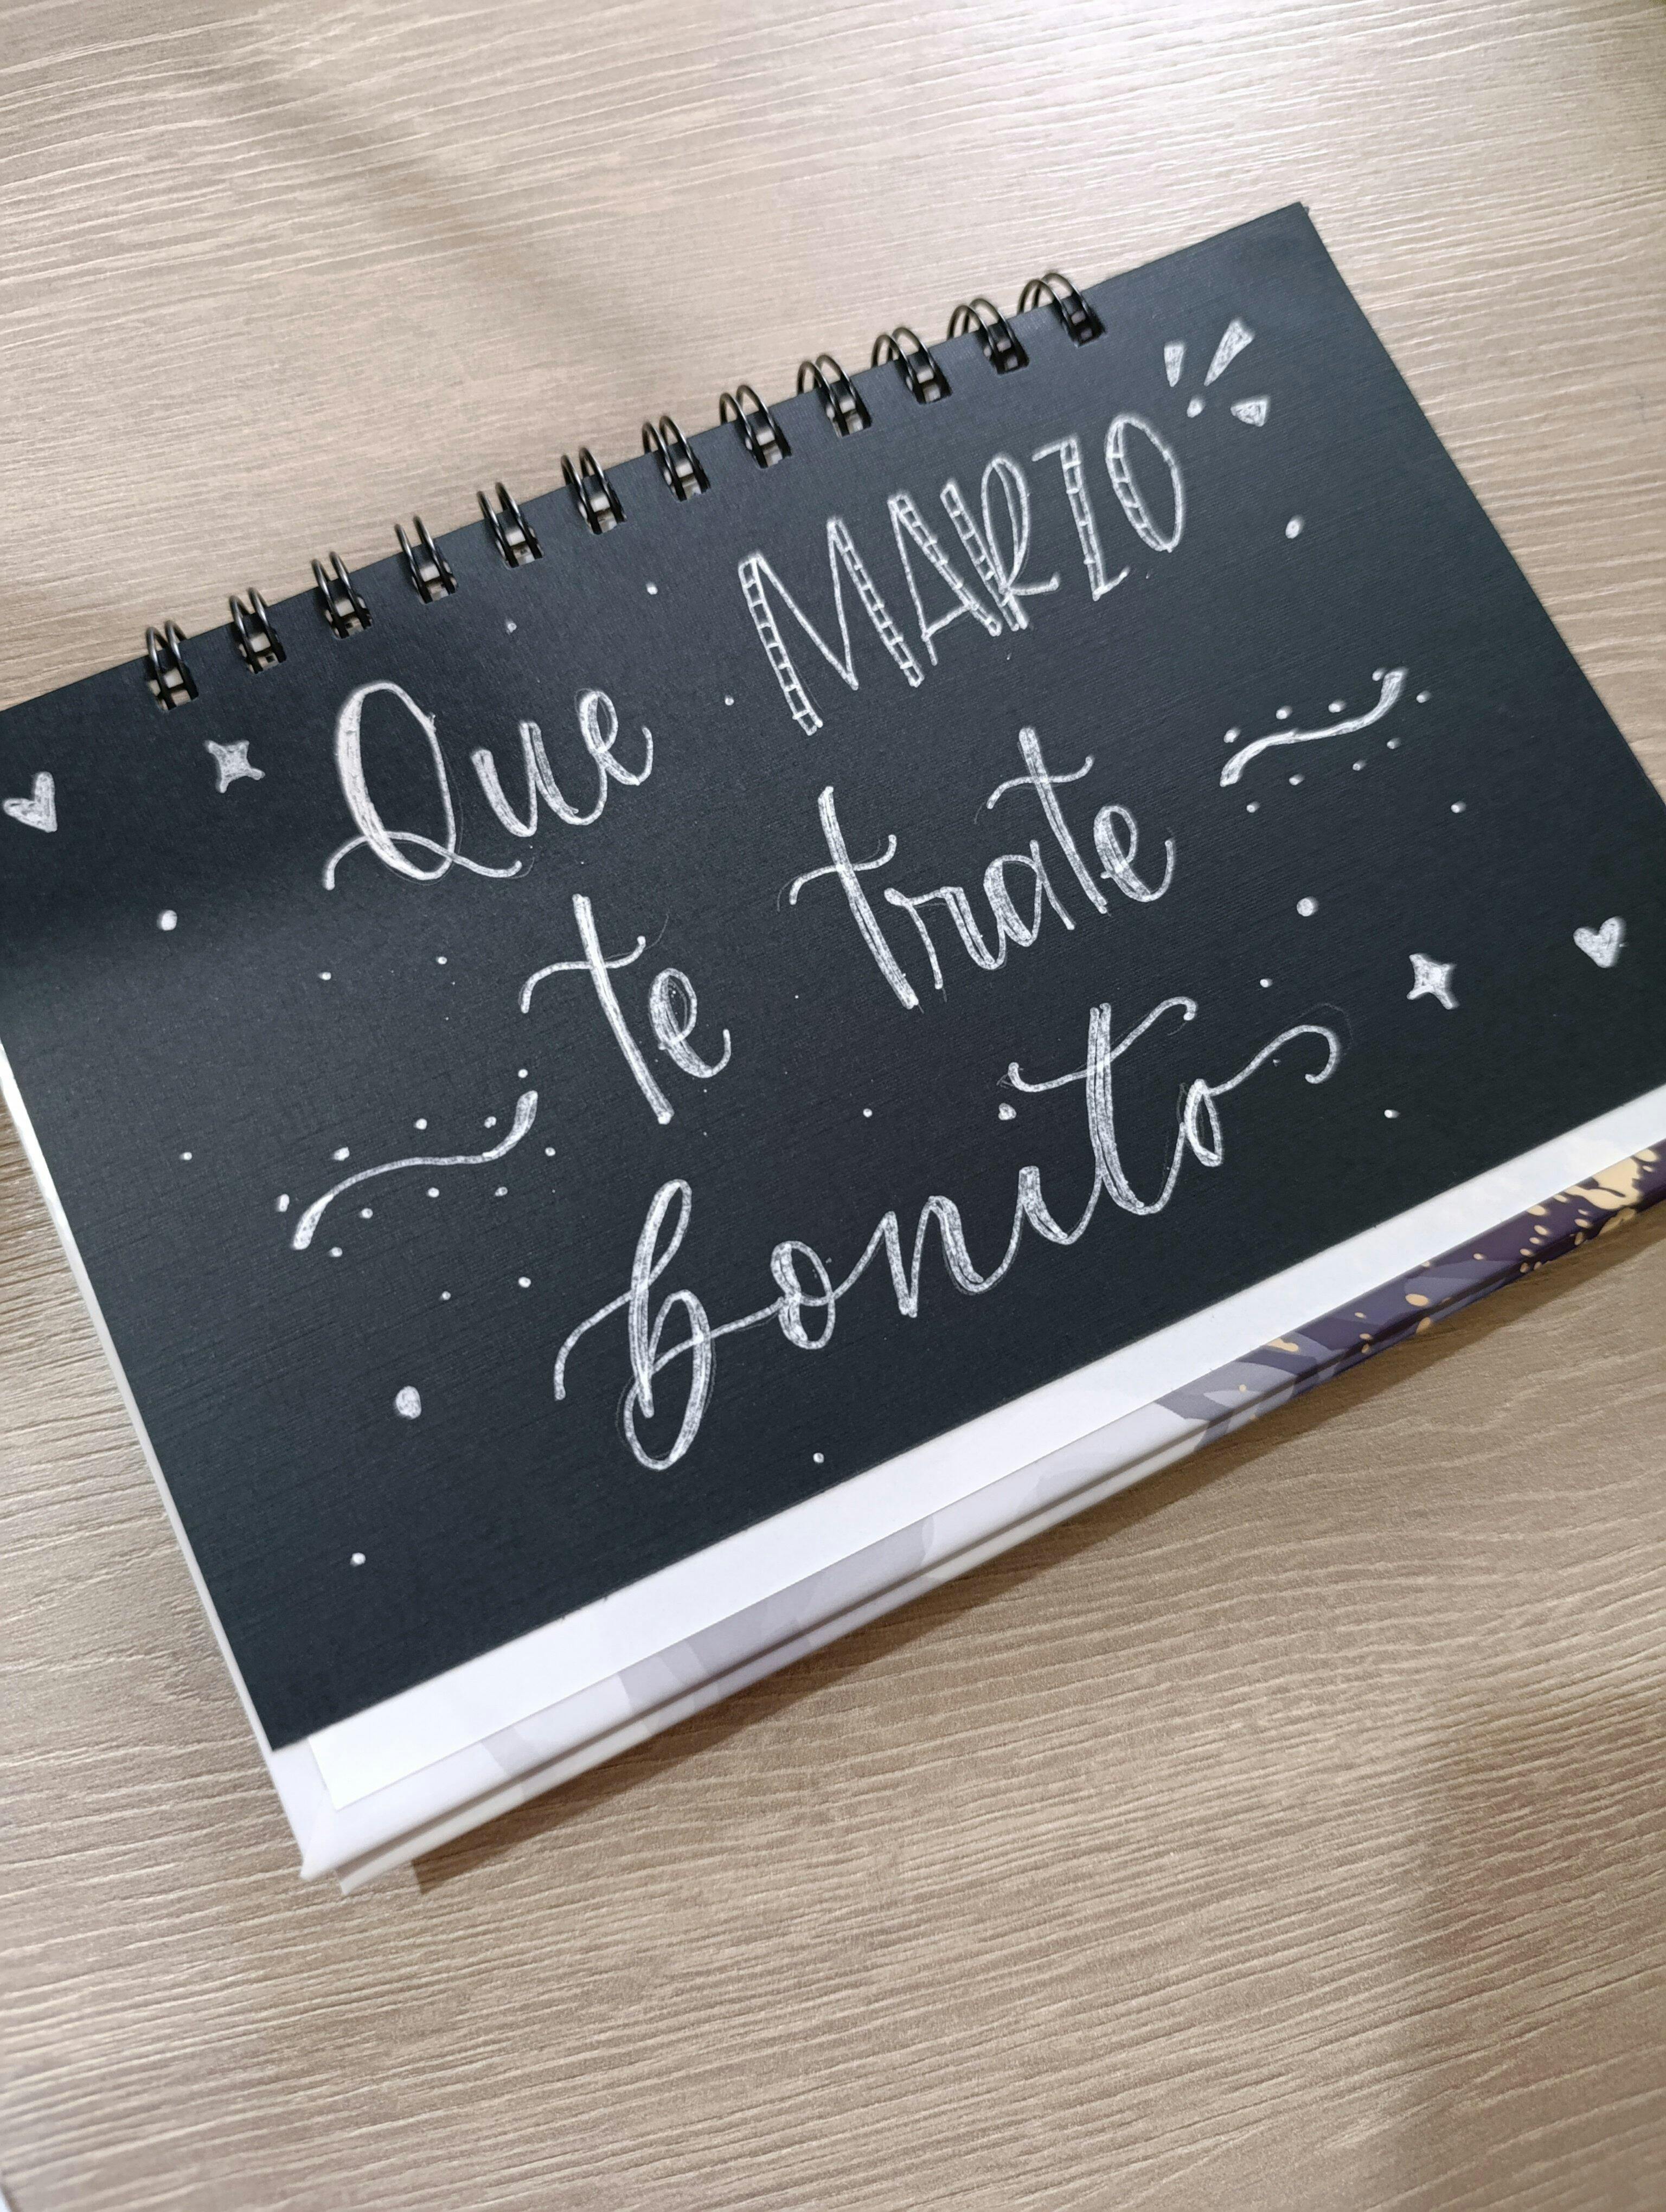 Que MARZO
te trate
bonito